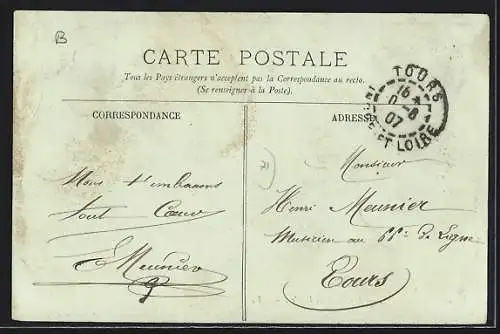 B
CARTE POSTALE
Tous les Pays étrangers n'acceptent pas la Correspondance au recto.
(Se renseigner à la Poste).
TOURS
16 *
6
07
ET LOIRE
CORRESPONDANCE
ADRESSE
Monsieur
Henri Meunier
Musicien au 66e de Ligne
Tours
Nous t'embrassons
tout Cœur
Meunier